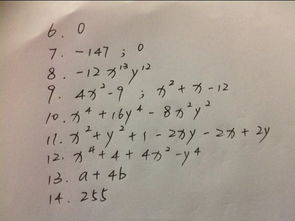 6. 0
7. -147 ; 0
8. -12 x¹³y¹²
9. 4x²-9 ; x²+x-12
10. x⁴+16y⁴-8x²y²
11. x²+y²+1-2xy-2x+2y
12. x⁴+4+4x²-y⁴
13. a+4b
14. 255